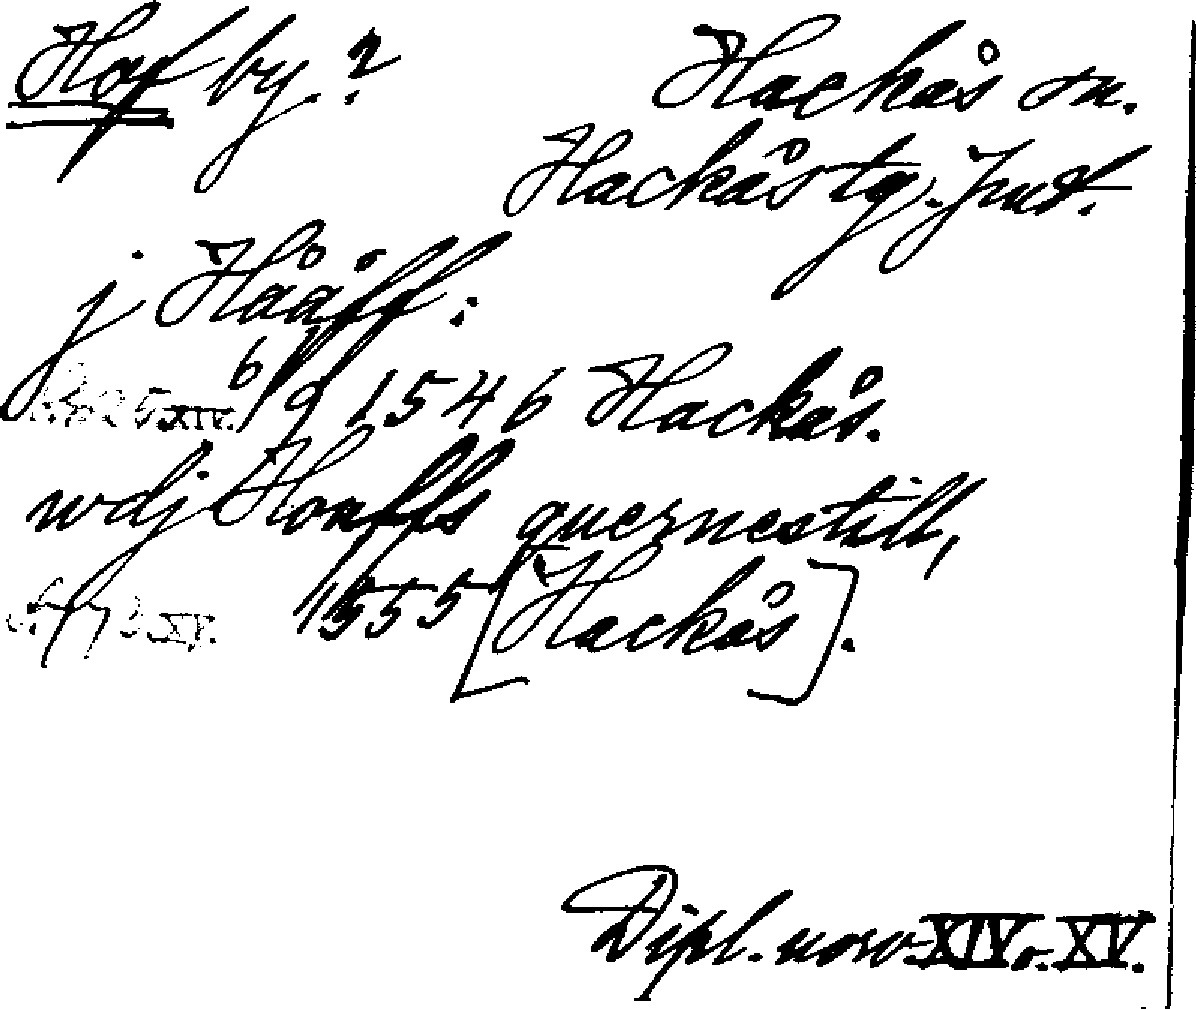 Hof by.? Hackås sn.
Hackås tg. Jmt.
j Hååff:
s. 825. XIV. 6/9 1546 Hackås.
wdj Hoaffs quernestill,
s. 773. XV. 1555 [Hackås].
Dipl. norv. XIV o. XV.